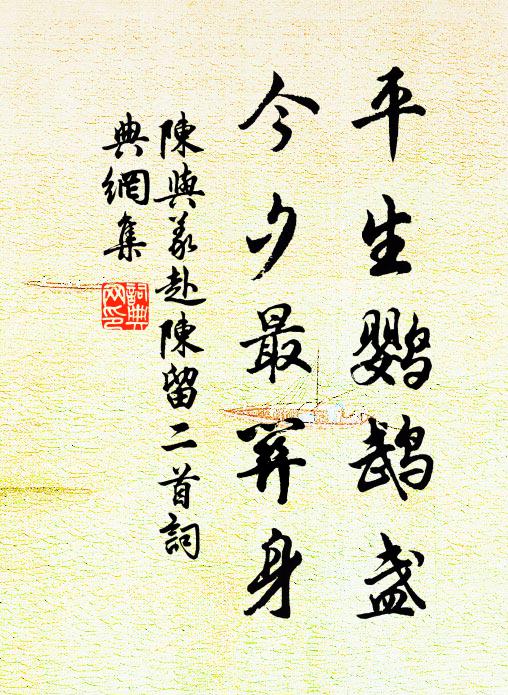 平生鸚鵡盞
今夕最關身
陳與義赴陳留二首詞
典網集
詞典
网印